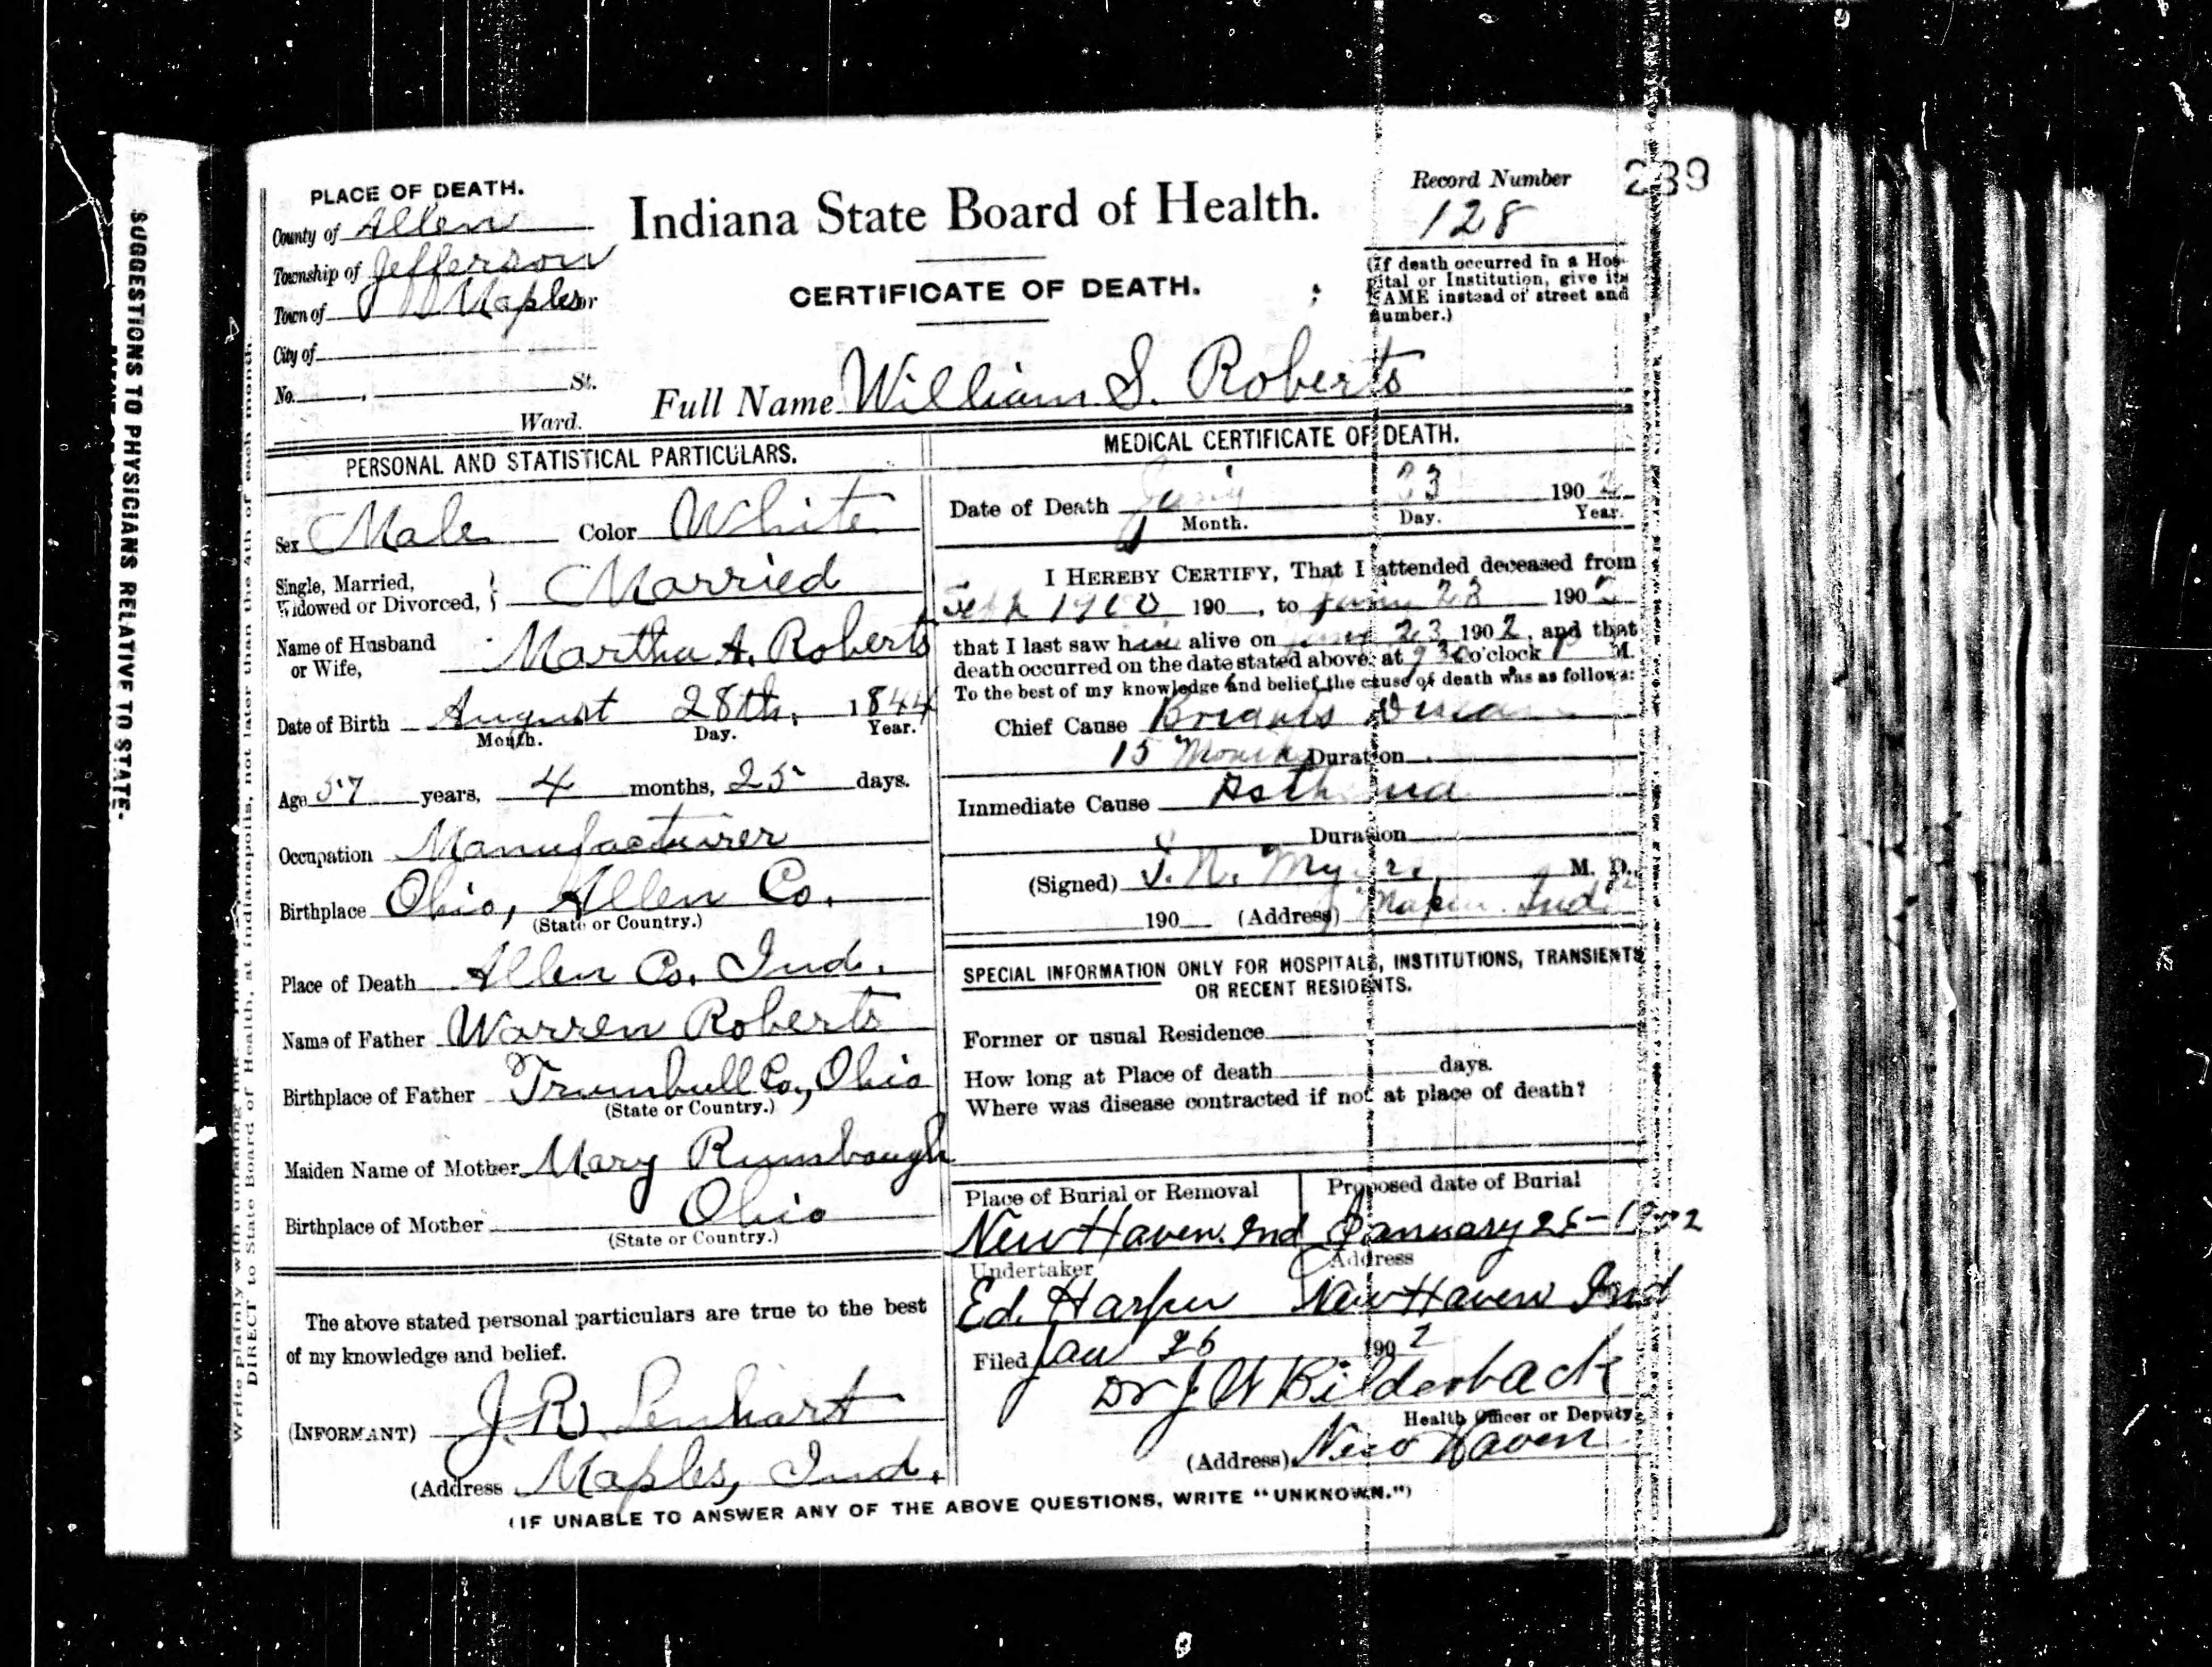 239
PLACE OF DEATH.
County of Allen
Township of Jefferson
Town of Maples or
City of
No. St.
Ward.
Indiana State Board of Health.
CERTIFICATE OF DEATH.
Record Number
128
(If death occurred in a Hospital or Institution, give its NAME instead of street and number.)
Full Name William S. Roberts
PERSONAL AND STATISTICAL PARTICULARS.
Sex Male Color White
Single, Married,
Widowed or Divorced, } Married
Name of Husband
or Wife, Martha A. Roberts
Date of Birth August 28th, 1844
Month. Day. Year.
Age 57 years, 4 months, 25 days.
Occupation Manufacturer
Birthplace Ohio, Allen Co.
(State or Country.)
Place of Death Allen Co. Ind.
Name of Father Warren Roberts
Birthplace of Father Trumbull Co., Ohio
(State or Country.)
Maiden Name of Mother Mary Rumbaugh
Birthplace of Mother Ohio
(State or Country.)
The above stated personal particulars are true to the best
of my knowledge and belief.
(INFORMANT) J. R. Lenhart
(Address Maples, Ind.
MEDICAL CERTIFICATE OF DEATH.
Date of Death 23 1902
Month. Day. Year.
I HEREBY CERTIFY, That I attended deceased from
1900 190 , to 23 1902
that I last saw him alive on 23 1902, and that
death occurred on the date stated above, at 9 30 o'clock P M.
To the best of my knowledge and belief, the cause of death was as follows:
Chief Cause Brights Disease
15 Months Duration
Immediate Cause Asthma
Duration
(Signed) M. D.
190 (Address) Ind
SPECIAL INFORMATION ONLY FOR HOSPITALS, INSTITUTIONS, TRANSIENTS
OR RECENT RESIDENTS.
Former or usual Residence
How long at Place of death days.
Where was disease contracted if not at place of death?
Place of Burial or Removal Proposed date of Burial
New Haven. Ind January 25-1902
Undertaker Address
Ed. Harper New Haven Ind
Filed Jan 26 1902
Dr J W Bilderback
Health Officer or Deputy
(Address) New Haven
(IF UNABLE TO ANSWER ANY OF THE ABOVE QUESTIONS, WRITE "UNKNOWN.")
SUGGESTIONS TO PHYSICIANS RELATIVE TO STATE-
DIRECT to State Board of Health, at Indianapolis, not later than the 4th of each month.